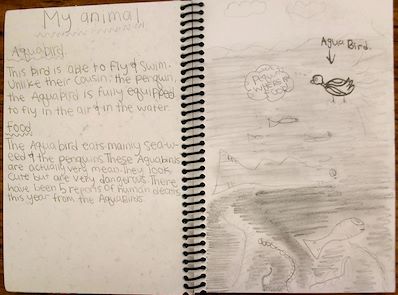 My animal
Aquabird
This bird is able to fly & swim.
Unlike their cousin: the penguin,
the AquaBird is fully equipped
to fly in the air & in the water.
food
The Aquabird eats mainly sea-we-
ed & the penguins. These Aquabirds
are actually very mean. they look
cute but are very dangerous. There
have been 5 reports of human deaths
this year from the AquaBirds.
Aqua Bird.